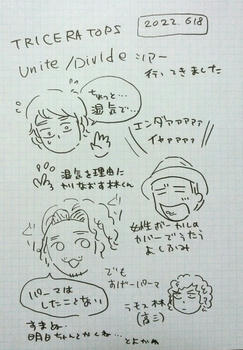 TRICERATOPS
2022.6.18
Unite/Divide ツアー
行ってきました
ちょっと…
湿気で…
エンダァァァァ
イヤァァァァ
湿気を理由に
やりなおす林くん
女性ボーカルの
カバーでうたう
よしふみ
パーマは
したことない
でも
あげーパーマ
ラモス林
(高三)
すまぬ
明日ちゃんとかしね…